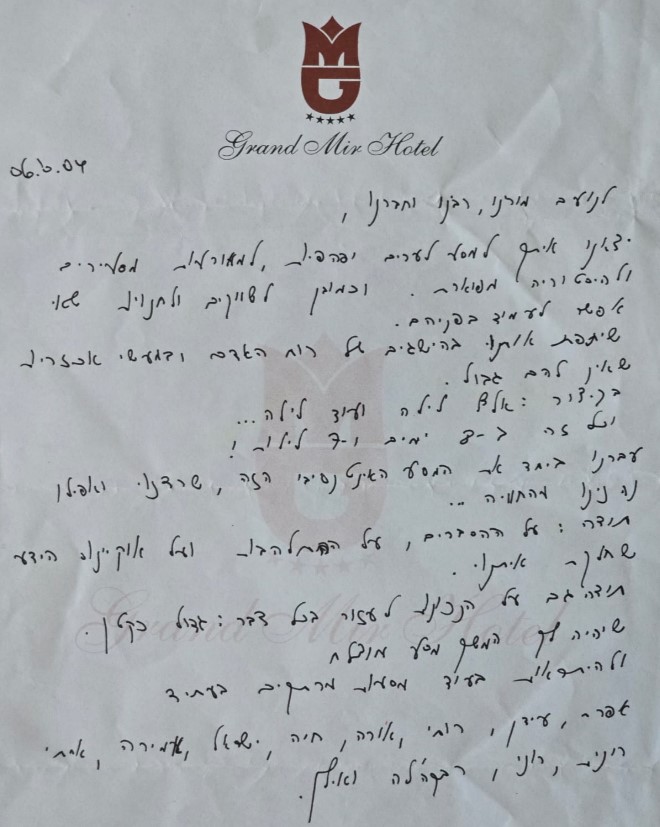 MG
Grand Mir Hotel
06.6.04
לנועם מורנו, רבנו וחברנו,
יצאנו איתך למסע לערים יפהפיות, למאורעות מסעירים
ולהיסטוריה מפוארת. וכמובן לשווקים ולחנויות שאי
אפשר לעמוד בפניהם.
שיתפת אותנו בהישגים של רוח האדם ובמעשי אכזריות
שאין להם גבול.
בקיצור: אלף לילה ועוד לילה...
וכל זה ב-8 ימים ו-7 לילות!
עברנו ביחד את המסע האינטנסיבי הזה, שרדנו ואפילו
נהנינו מהחוויה...
תודה: על ההסברים, על ההתלהבות ועל אוקיינוס הידע
שחלקת איתנו.
תודה גם על הנכונות לעזור בכל דבר: גדול כקטן.
שיהיה לך המשך מסע מוצלח
ולהתראות בעוד מסעות מרתקים בעתיד
אפרת, עידן, רותי, אורה, חיה, ישראל, אמירה, איתי
רונית, רוני, רבקה'לה ואילן.
Grand Mir Hotel